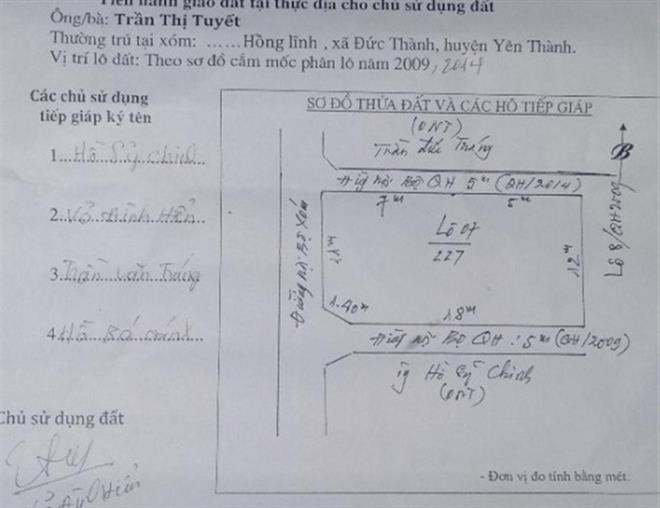 Tiến hành giao đất tại thực địa cho chủ sử dụng đất
Ông/bà: Trần Thị Tuyết
Thường trú tại xóm: ......Hồng lĩnh , xã Đức Thành, huyện Yên Thành.
Vị trí lô đất: Theo sơ đồ cắm mốc phân lô năm 2009, 2014
Các chủ sử dụng
tiếp giáp ký tên
1...Hồ Sỹ Chinh
2...Võ Hiển..
3...Trần Văn Tráng
4.Hồ Bá
Chủ sử dụng đất
SƠ ĐỒ THỬA ĐẤT VÀ CÁC HỘ TIẾP GIÁP
(ONT)
Trần Tráng
B
QH 5m (QH/2014)
7m
5m
Lô 07
227
12m
1.40m
18m
QH : 5m (QH/2009)
Hồ Sỹ Chinh
(ONT)
- Đơn vị đo tính bằng mét.